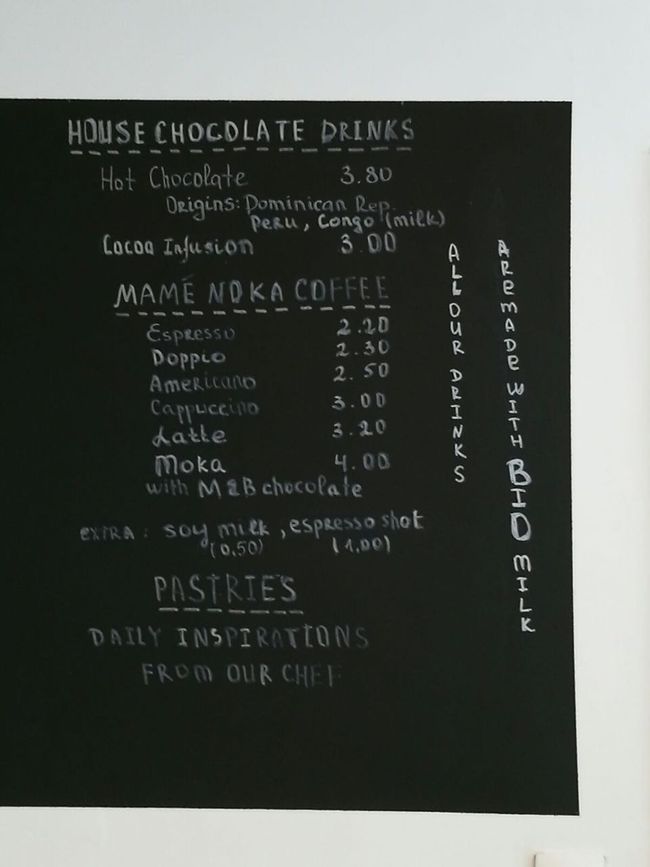 HOUSE CHOCOLATE DRINKS
Hot Chocolate 3.80
Origins: Dominican Rep.
Peru, Congo (milk)
Cocoa Infusion 3.00
MAMÉ NOKA COFFEE
Espresso 2.20
Doppio 2.30
Americano 2.50
Cappuccino 3.00
Latte 3.20
Moka 4.00
with M&B chocolate
extra: soy milk, espresso shot
(0,50) (1,00)
PASTRIE'S
DAILY INSPIRATIONS
FROM OUR CHEF
ALL OUR DRINKS
ARE MADE WITH BIO MILK